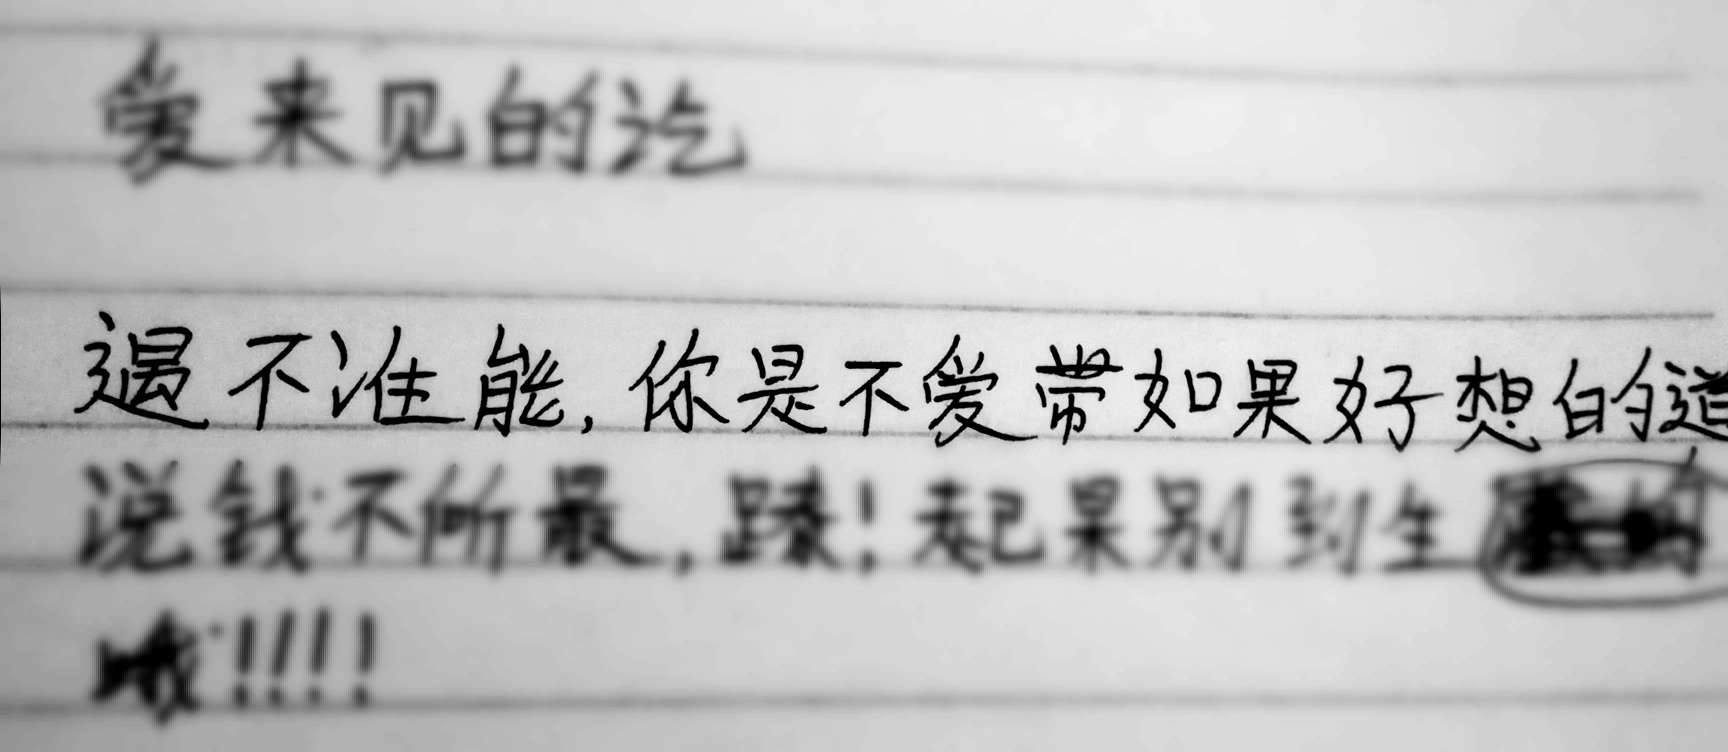 爱来见的讫
遇不准能,你是不爱带如果好想的道
说钱不所最,踩!起果别到生
哦!!!!